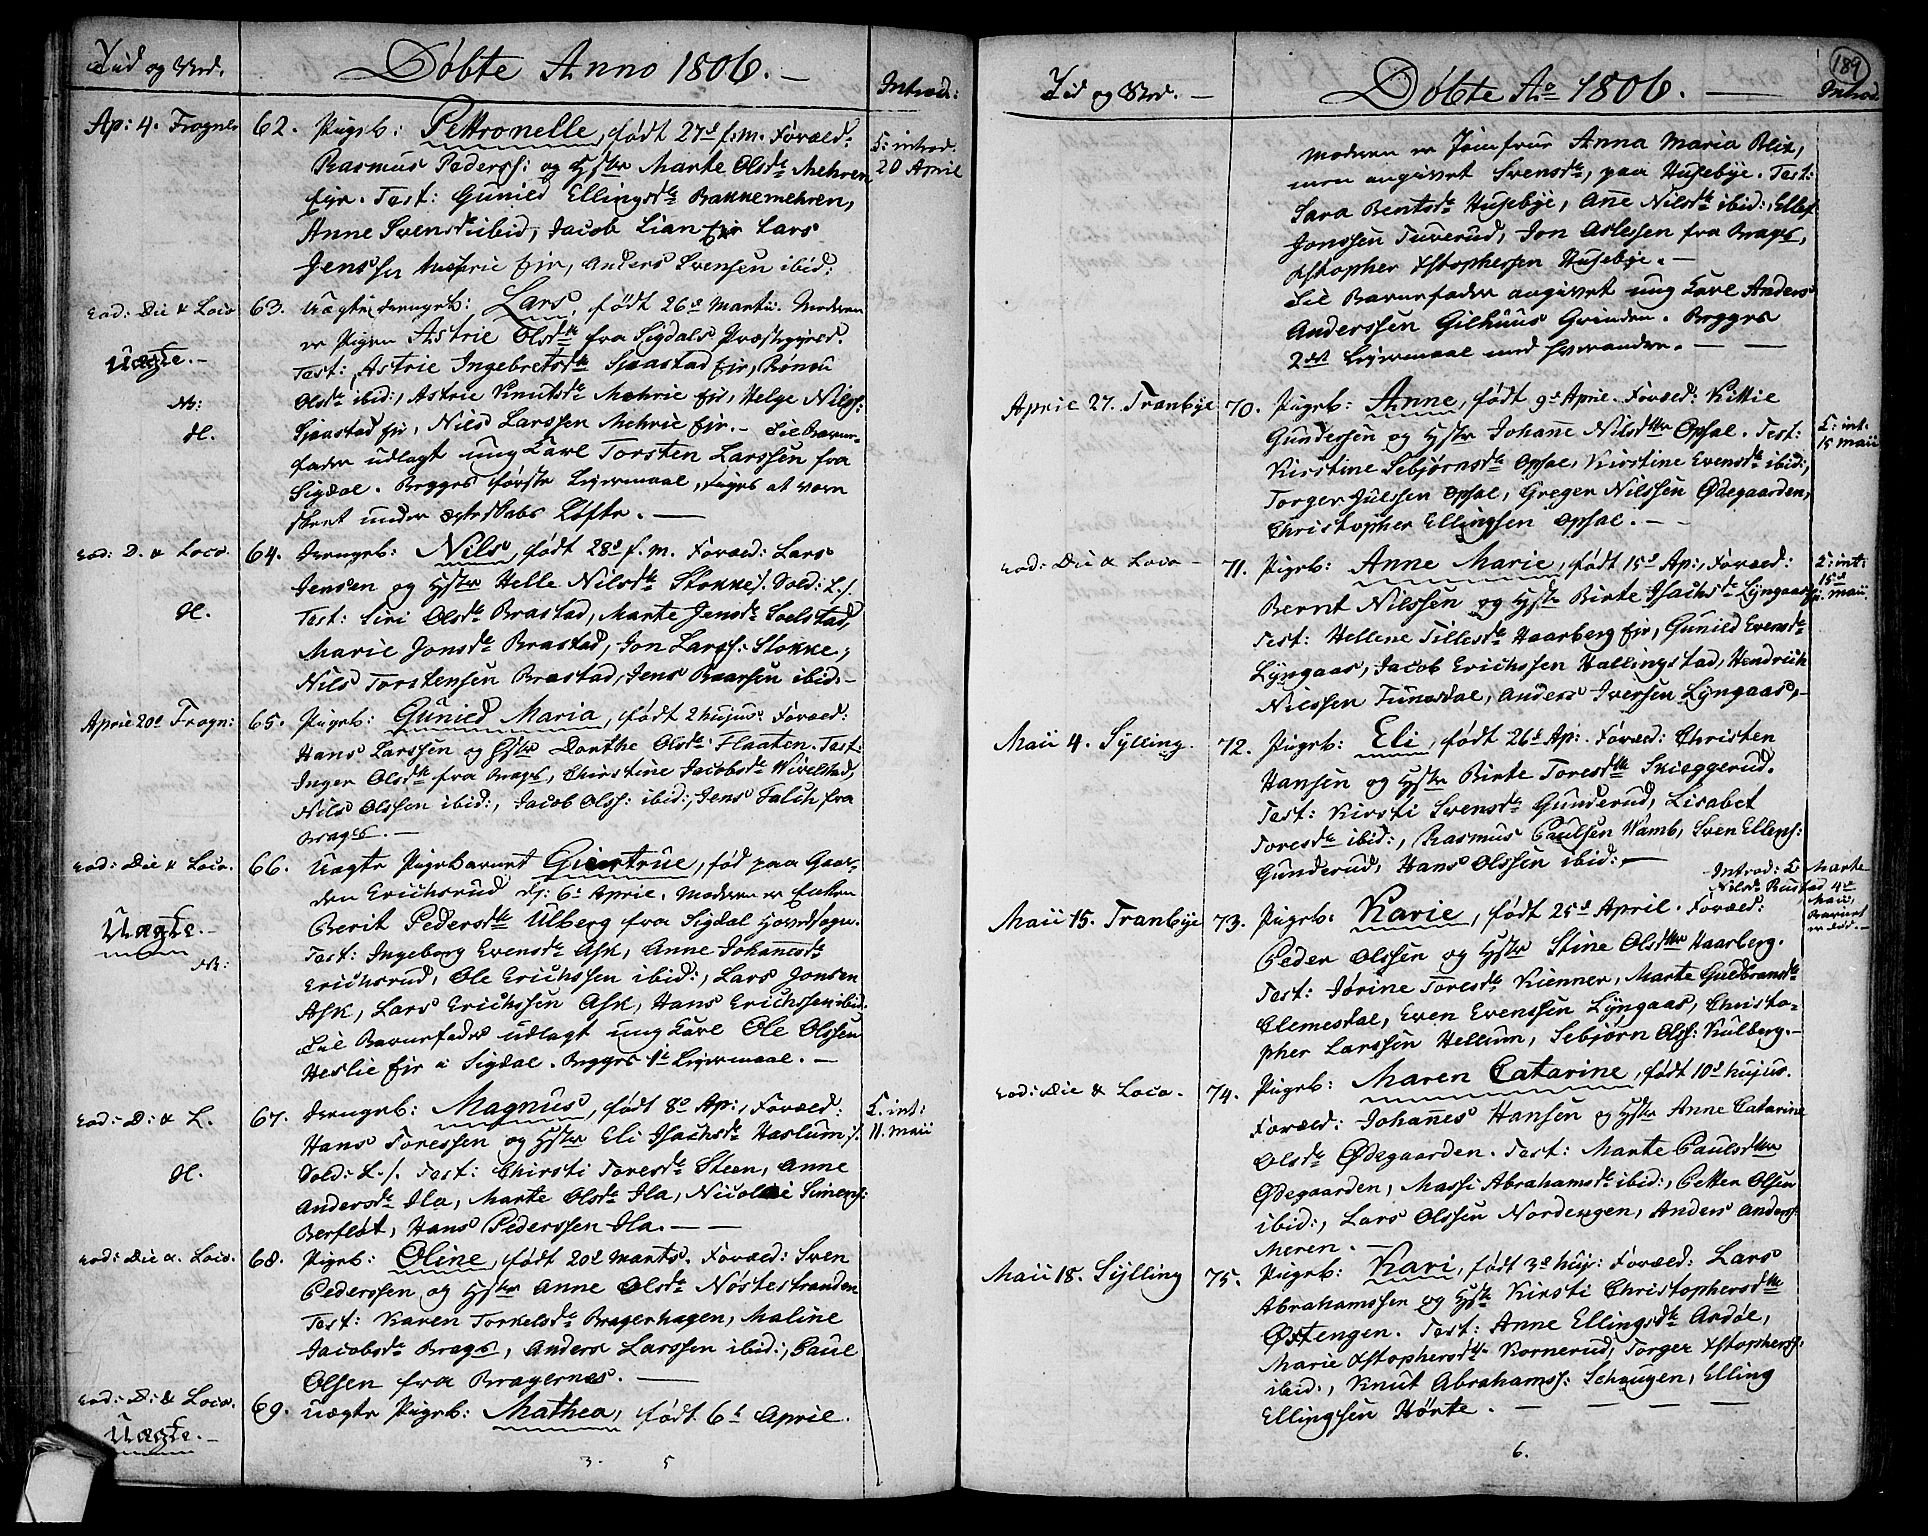 Tid og Sted.
Døbte Anno 1806. —
Introd:
Ap: 4. Frogner
62. Pigeb: Pettronelle, født 27de f. m. Foræld:
Rasmus Pederss: og Hstr Marte Olsdr Mehren
eje. Test: Gunild Ellingsdr Bakkemehren,
Anne Svensdr ibid, Jacob Lian eje Lars
Jenssen eje, Anders Svensen ibid:
S: introd.
20 April
eod: Die & Loco
Uægte. —
NB:
H.
63. Uægte Drengeb: Lars, født 26de Martii. Moderen
er Pigen Astrie Olsdtr fra Sigdals Præstegield.
Test: Astrie Ingebretsdr Sjaastad eje, Rønnu
Olsdr ibid:, Astrie Knutsdr Mehrie eje, Helge Nilss:
Sjaastad eje, Nils Larssen Mehrie eje. — Til Barne-
fader udlagt ung Karl Torsten Larssen fra
Sigdal. Begges første Leiermaal, siges at være
skeet under Ægteskabs Løfte. —
eod: D. & Loco.
H.
64. Drengeb: Nils, født 28de f. m. Foræld: Lars
Jensen og Hstr Helle Nilsdr Stokke /: Sold: L /.
Test: Siri Olsdr Brastad, Marte Jensdr Solstad,
Marie Jonsdr Brastad, Jon Larss: Stokke,
Nils Torstensen Brastad, Jens Baarsen ibid: —
April 20de Frogn:
65. Pigeb: Gunild Maria, født 2 hujus. Foræld:
Hans Larssen og Hstr Dorthe Olsdr Flaaten. Test:
Inger Olsdtr fra Brages, Christine Jacobsdr Wivelstad,
Nils Olssen ibid:, Jacob Olss: ibid:, Jens Falch fra
Brages. —
eod: Die & Loco.
Uægte. —
NB:
66. Uægte Pigebarnet Giertrue, fød paa Gaar-
den Erichsrud d: 6te April. Moderen er Enken
Berit Pedersdtr Ulberg fra Sigdal Hovedsogn.
Test: Ingeborg Evensdr Ask, Anne Johannesdr
Erichsrud, Ole Erichssen ibid:, Lars Jonsen
Ask, Lars Erichssen Ask, Hans Erichssen ibid.
Til Barnefader udlagt ung Karl Ole Olssen
Heslie eje i Sigdal. Begges 1te Leiermaal. —
eod: D: & L.
H.
67. Drengeb: Magnus, født 8de Ap:, Foræld:
Hans Toressen og Hstr Eli Isachsdr Haslum /:
Sold: L /. Test: Chirsti Toresdr Steen, Anne
Andersdr Ila, Marte Olsdr Ila, Nicolai Simens:
Berfløt, Hans Pederssen Ila. — —
S. int:
11. Maii
eod: Die & Loco.
68. Pigeb: Oline, født 20de Marts. Foræld: Sven
Pederssen og Hstr Anne Olsdr Nøstestranden
Test: Karen Torkelsdr Bragerhagen, Maline
Jacobsdr Brages, Anders Larssen ibid:, Paul
Olsen fra Bragernæs. —
eod: D: & Loco.
Uægte. —
69. Uægte Pigeb: Mathea, født 6te April.
3. 5
189
Tid og Sted. —
Døbte Ao 1806. —
Introd
Moderen er Jomfrue Anna Maria Blix,
men angivet Svensdr, paa Husebye. Test:
Sara Bentsdr Husebye, Ane Nilsdr ibid:, Ellef
Jonssen Tuverud, Jon Aslesen fra Brages,
Xstopher Xstophersen Husebye. —
Til Barnefader angivet ung Karl Anders
Anderssen Gilhuus Grinden. Begges
2det Leiermaal med hverandre. — —
April 27. Tranbye
70. Pigeb: Anne, født 9de April. Foræld: Kittil
Gunderssen og Hstr Johane Nilsdtter Opsal. Test:
Kirstine Sebjørnsdr Opsal, Kirstine Evensdr ibid:,
Torger Julssen Opsal, Gregen Nilssen Ødegaarden,
Christopher Ellingsen Opsal. —
S: int:
15 Maii
eod: Die & Loco —
71. Pigeb: Anne Marie, født 15de Ap:, Foræld:
Bernt Nilssen og Hstr Birte Isachsdr Lyngaas eje.
Test: Hellene Tillesdr Haarberg eje, Gunild Evensdr
Lyngaas, Jacob Erichssen Hallingstad, Hendrich
Nilssen Tunesdal, Anders Iverssen Lyngaas, —
S: int:
15de
Maii.
Maii 4. Sylling.
72. Pigeb: Eli, født 26de Ap:. Foræld: Christen
Hansen og Hstr Birte Toresdtr Skieggerud.
Test: Kirsti Svensdr Gunderud, Lisabet
Toresdr ibid:, Rasmus Paulsen Wamb, Sven Ellens:
Gunderud, Hans Olssen ibid: —
Maii 15. Tranbye
73. Pigeb: Karie, født 25de April. Foræld:
Peder Olssen og Hstr Stine Olsdtter Haarberg.
Test: Jørine Toresdr Kienner, Marte Guldbransdr
Clemesdal, Even Evenssen Lyngaas, Christo-
pher Larssen Hellum, Sebjørn Olss: Kulberg. —
Introd: S Marte
Nilsdr Rustad 4de
Maii,
Barnet
er død. —
eod: Die & Loco.
74. Pigeb: Maren Catarine, født 10de hujus.
Foræld: Johannes Hansen og Hstr Anne Catarine
Olsdr Ødegaarden. Test: Marte Paulsdtter
Ødegaarden, Massi Abrahamsdr ibid:, Petter Olsen
ibid:, Lars Olssen Nordengen, Anders Anders:
Meren. —
Maii 18. Sylling
75. Pigeb: Kari, født 3de huj: Foræld: Lars
Abrahamssen og Hstr Kirsti Christophersdtr
Østengen. Test: Anne Ellingsdr Ardøl,
Marie Xstophersdr Kornerud, Torger Xstophers:
ibid:, Knut Abrahamss: Schougen, Elling
Ellingsen Hørte. — — — —
6.